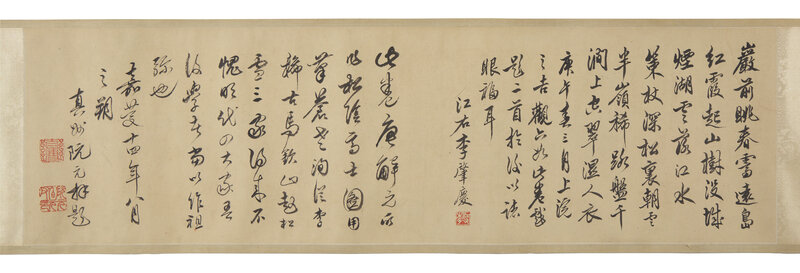 巖前眺春霽遠島
紅霞起山樹沒城
煙湖雲落江水
策杖深松裏朝雲
半嶺稀路盤千
澗上空翠濕人衣
庚午春三月上浣
之吉觀六如此卷戲
題二首於後以誌
眼福耳
江右李肇慶
此卷唐解元所
作松陰高士圖用
筆蒼老洵從李
稀古馬欽山趙松
雪三家得來不
愧明代四大家吾
後學者當以作祖
也
嘉慶十四年八月
之朔
真州阮元拜題